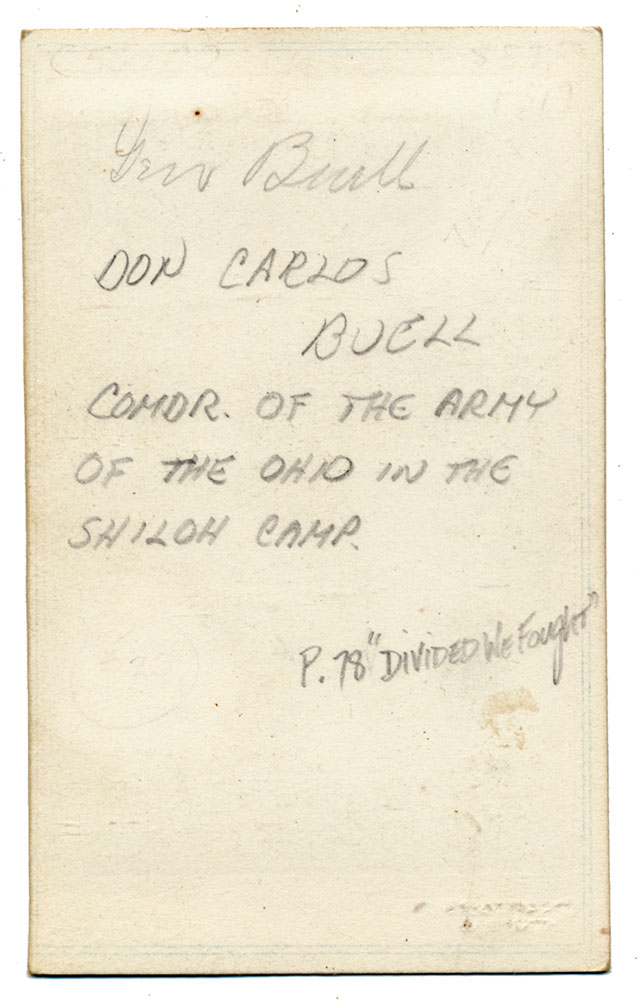 Gen Buell
DON CARLOS
BUELL
COMDR. OF THE ARMY
OF THE OHIO IN THE
SHILOH CAMP.
P. 78 "DIVIDED WE FOUGHT"